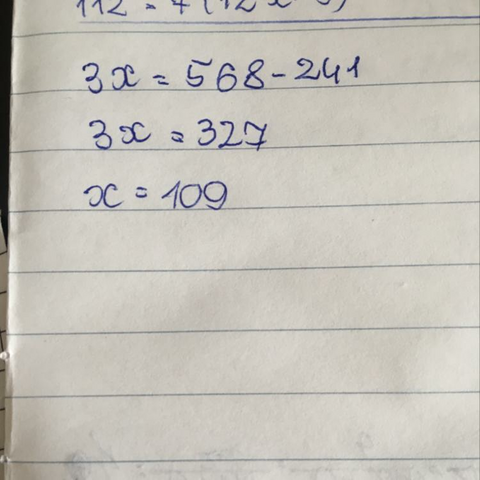 3x = 568 - 241
3x = 327
x = 109